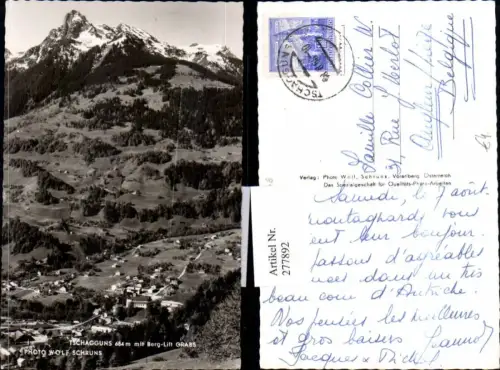 TSCHAGGUNS 684 m mit Berg-Lift GRABS
PHOTO WOLF SCHRUNS
Artikel Nr.
277892
TSCHAGGUNS
Famille
Rue
Belgique
Verlag: Photo Wolf, Schruns, Vorarlberg Österreich
Das Spezialgeschäft für Qualitäts-Photo-Arbeiten
Samedi, août
montagnards vous
ont leur bonjour.
Passons d'agréables
dans un très
beau coin d'Autriche.
Nos pensées les meilleures
et gros baisers
Jacques & Michel